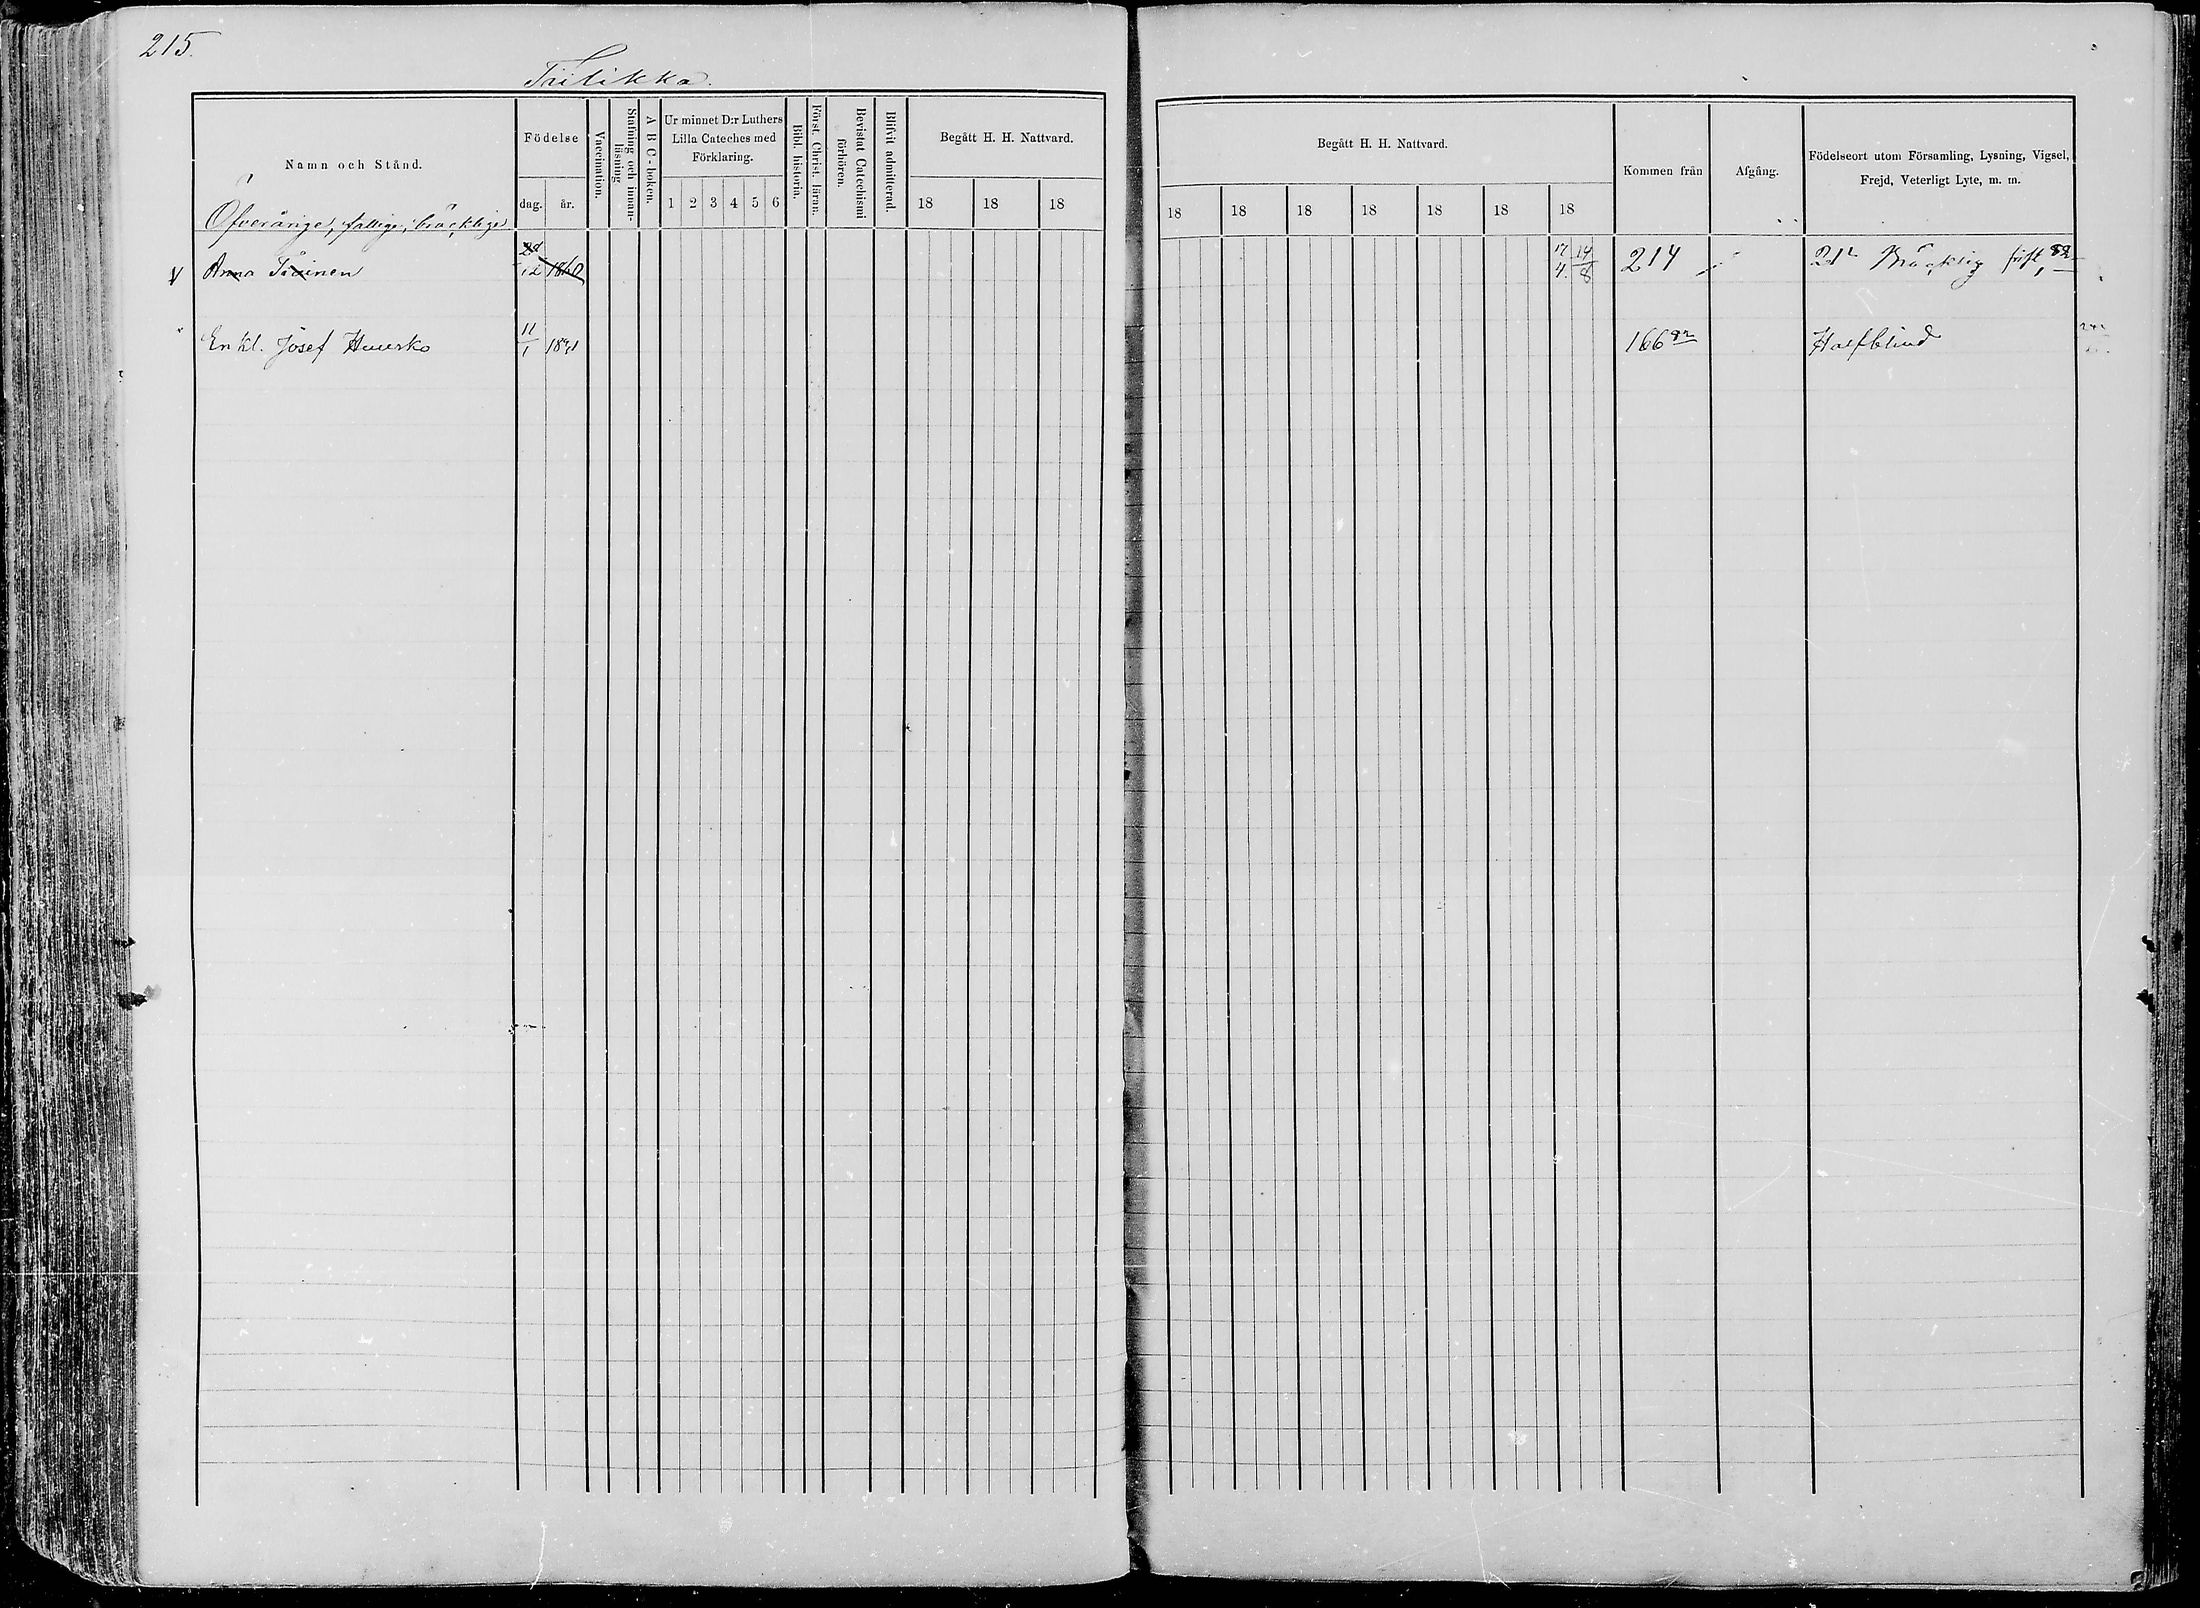 215.
Namn och Stånd.
Födelse
dag. år.
Vaccination.
Stafning och innan-
läsning
A B C-boken.
Ur minnet D:r Luthers
Lilla Cateches med
Förklaring.
1 2 3 4 5 6
Bibl. historia.
Först. Christ. läran.
Bevistat Catechismi
förhören.
Blifvit admitterad.
Begått H. H. Nattvard.
18 18 18
Begått H. H. Nattvard.
18 18 18 18 18 18 18
Kommen från
Afgång.
Födelseort utom Församling, Lysning, Vigsel,
Frejd, Veterligt Lyte, m. m.
Öfverårige, fattige, bräcklige
Anna 12 1860 17/4. 14/8 214 Bräcklig 82
Enkl. Josef 11/1 166 Halfblind